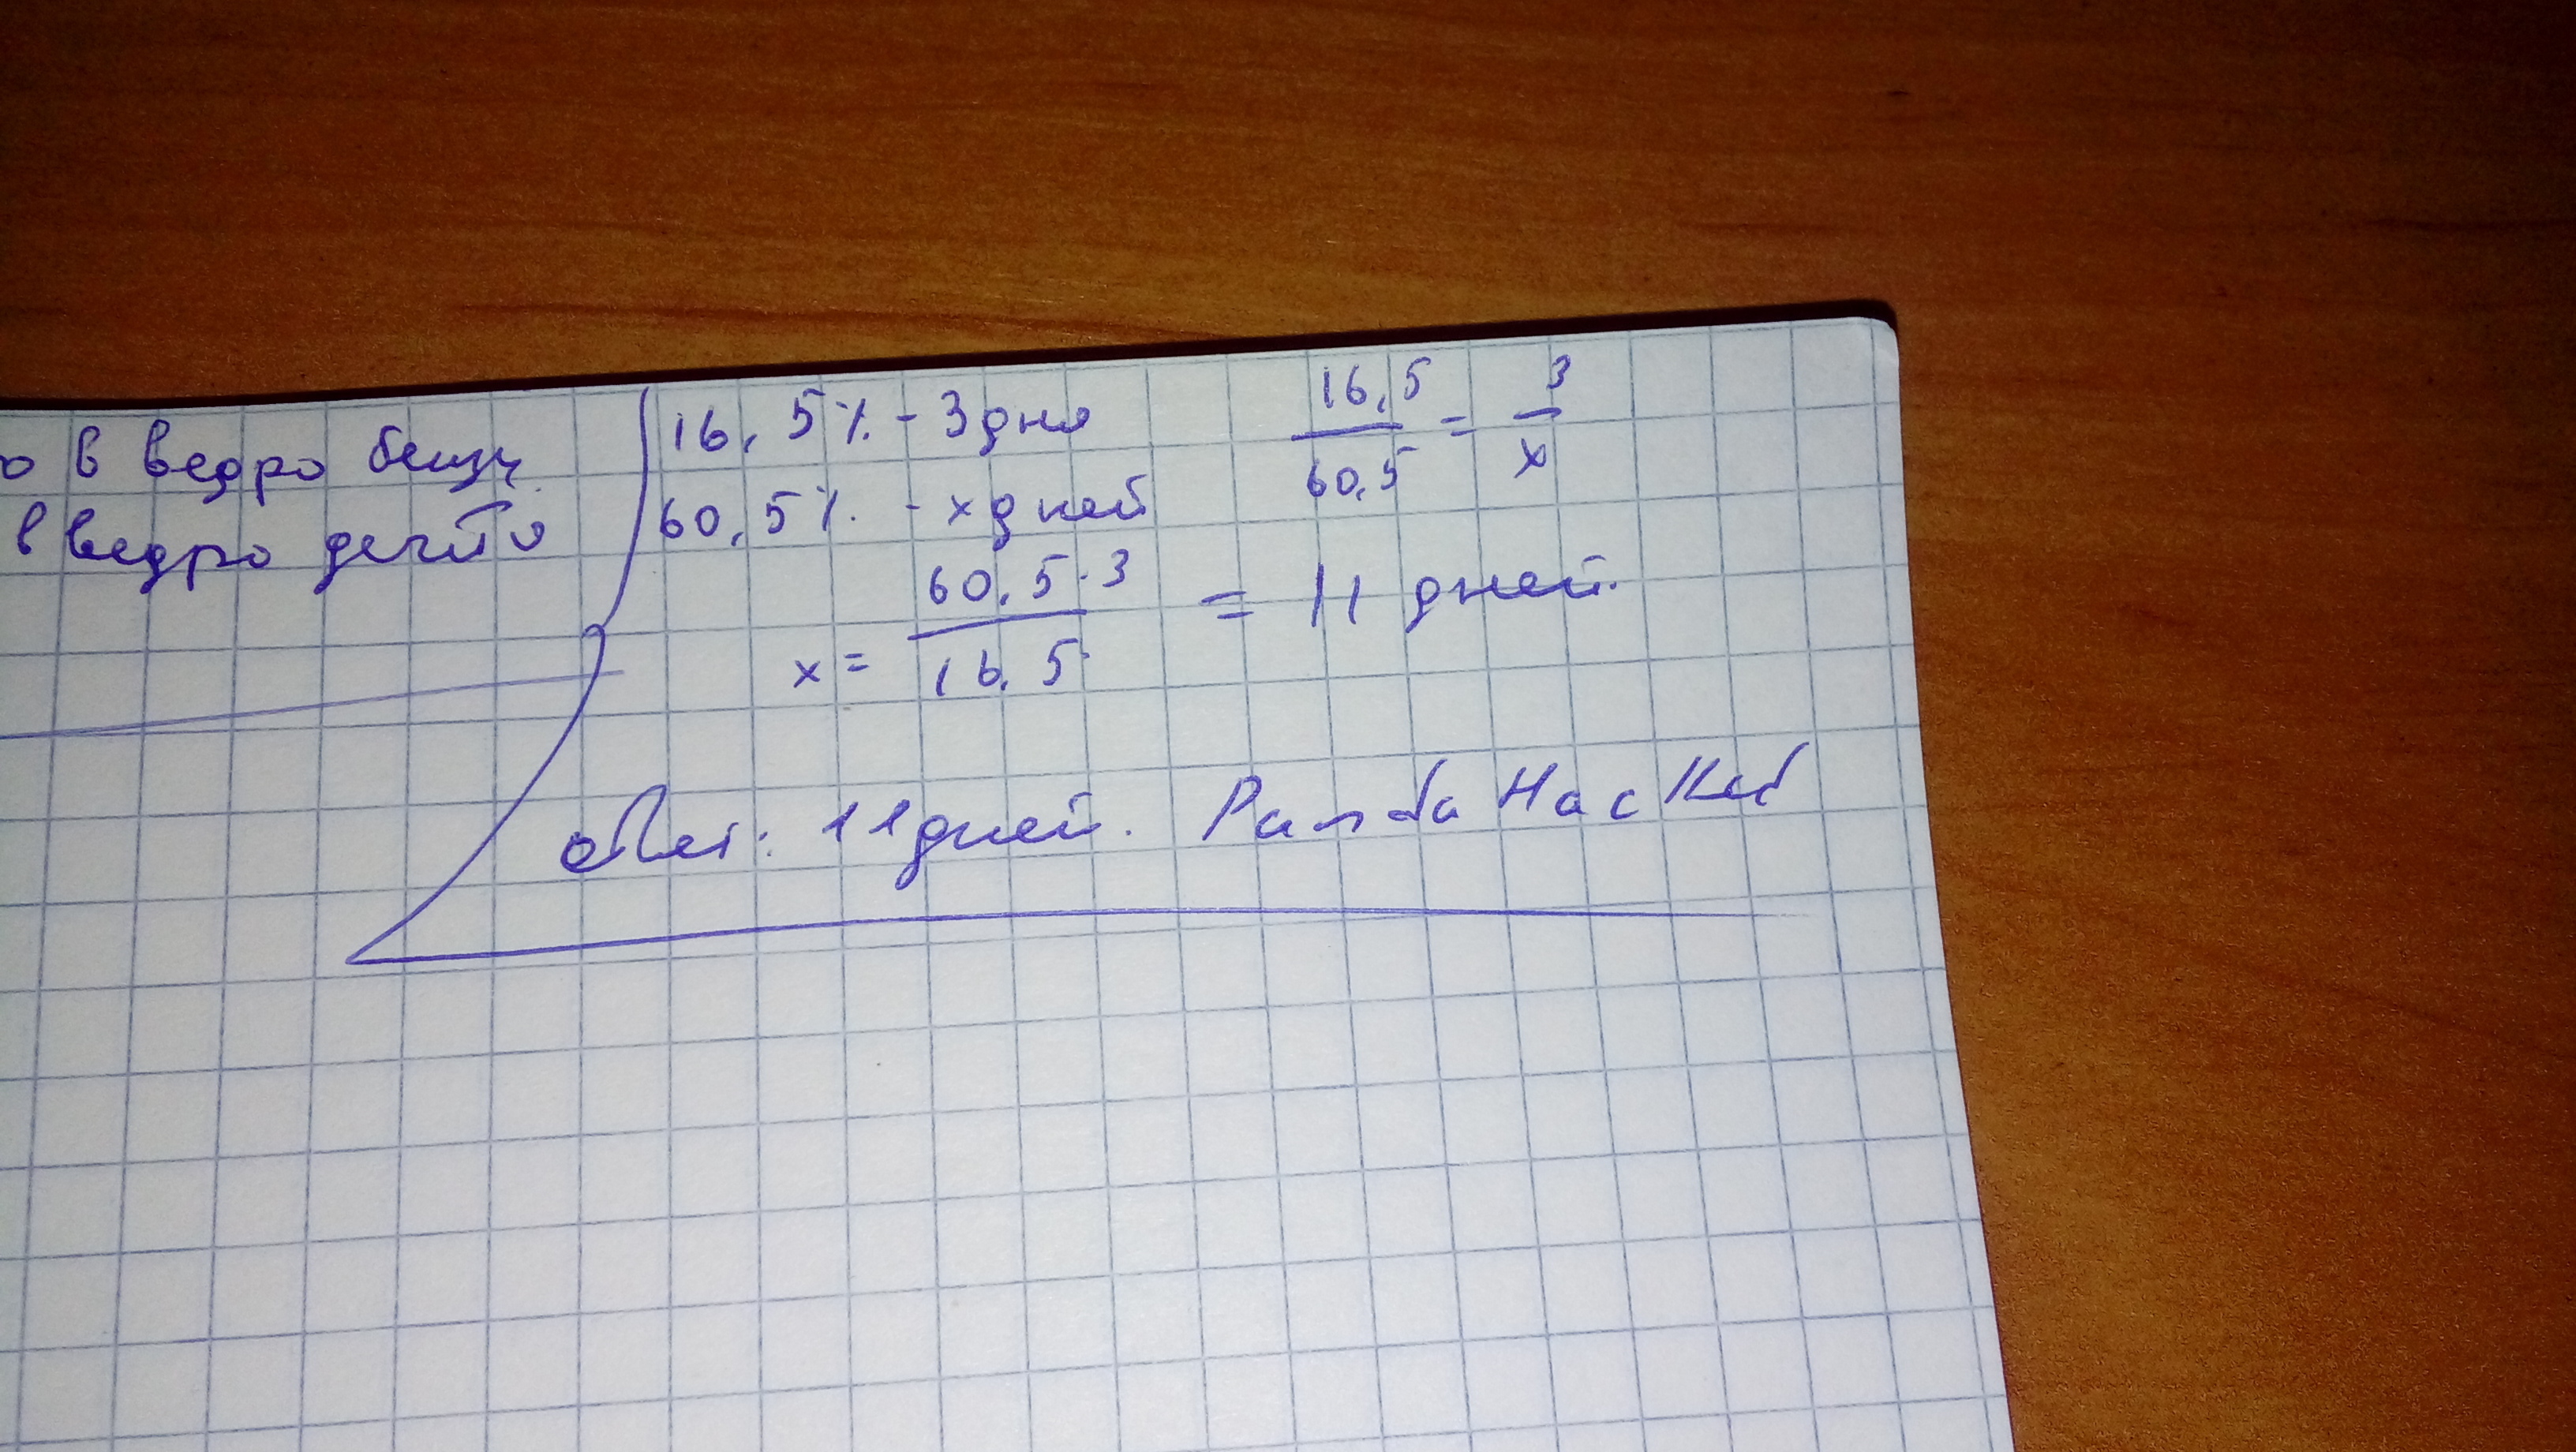 в ведро
в ведро дегтю
16,5% - 3 дня
60,5% - x дней
16,5/60,5 = 3/x
x = 60,5·3/16,5 = 11 дней.
Ответ: 11 дней.